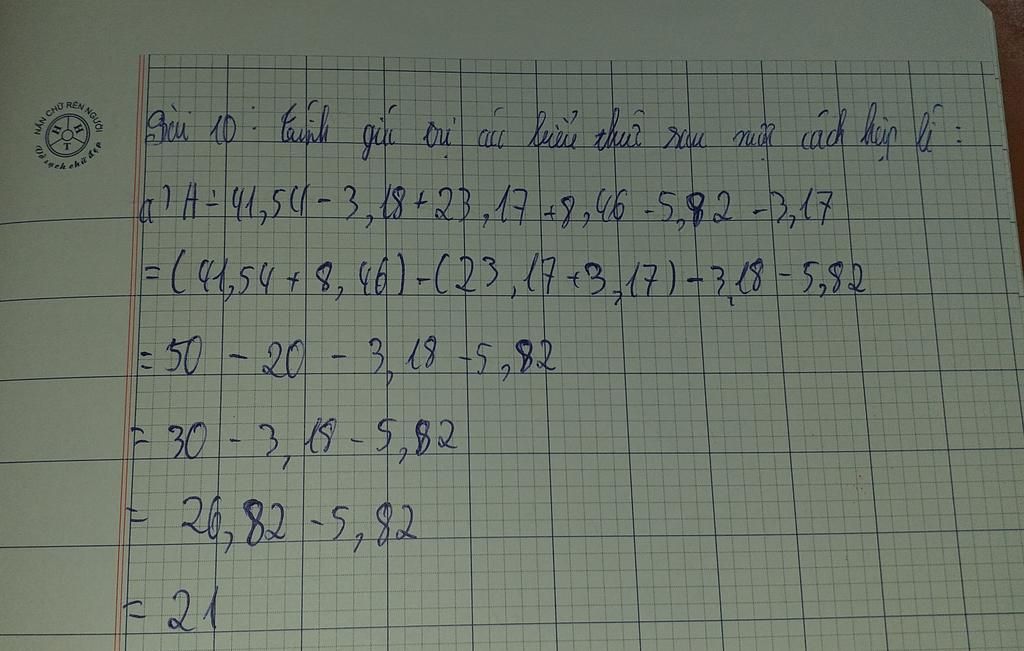 NẮN CHỮ RÈN NGƯỜI
H H T
Vở sạch chữ đẹp
Bài 10: tính giá trị các biểu thức sau một cách hợp lí :
a) A = 41,54 - 3,18 + 23,17 + 8,46 - 5,82 - 3,17
= (41,54 + 8,46) - (23,17 + 3,17) - 3,18 - 5,82
= 50 - 20 - 3,18 - 5,82
= 30 - 3,18 - 5,82
= 26,82 - 5,82
= 21